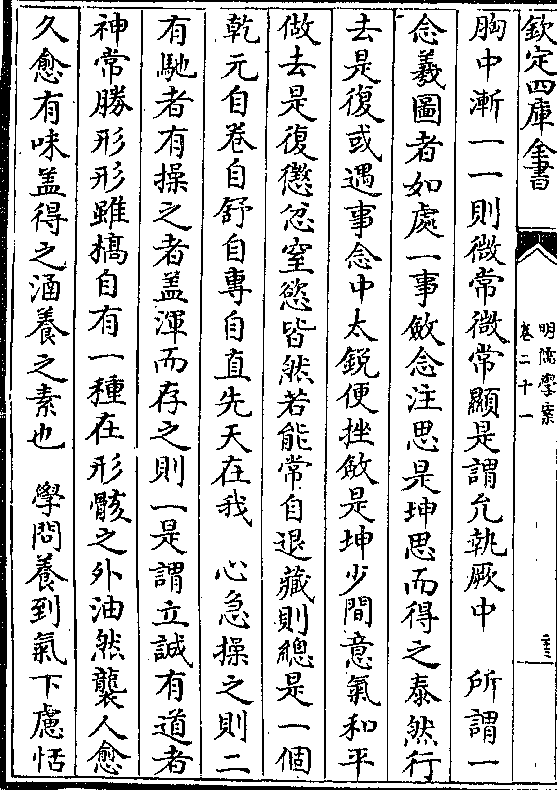 欽定四庫全書
明儒學案
卷二十一
胸中漸一一則微常微常顯是謂允執厥中　所謂一
念羲圖者如處一事斂念注思是坤思而得之泰然行
去是復或遇事念中太銳便挫斂是坤少間意氣和平
做去是復懲忿窒慾皆然若能常自退藏則總是一個
乾元自卷自舒自專自直先天在我　心急操之則二
有馳者有操之者蓋渾而存之則一是謂立誠有道者
神常勝形形雖槁自有一種在形骸之外油然襲人愈
久愈有味蓋得之涵養之素也　學問養到氣下慮恬